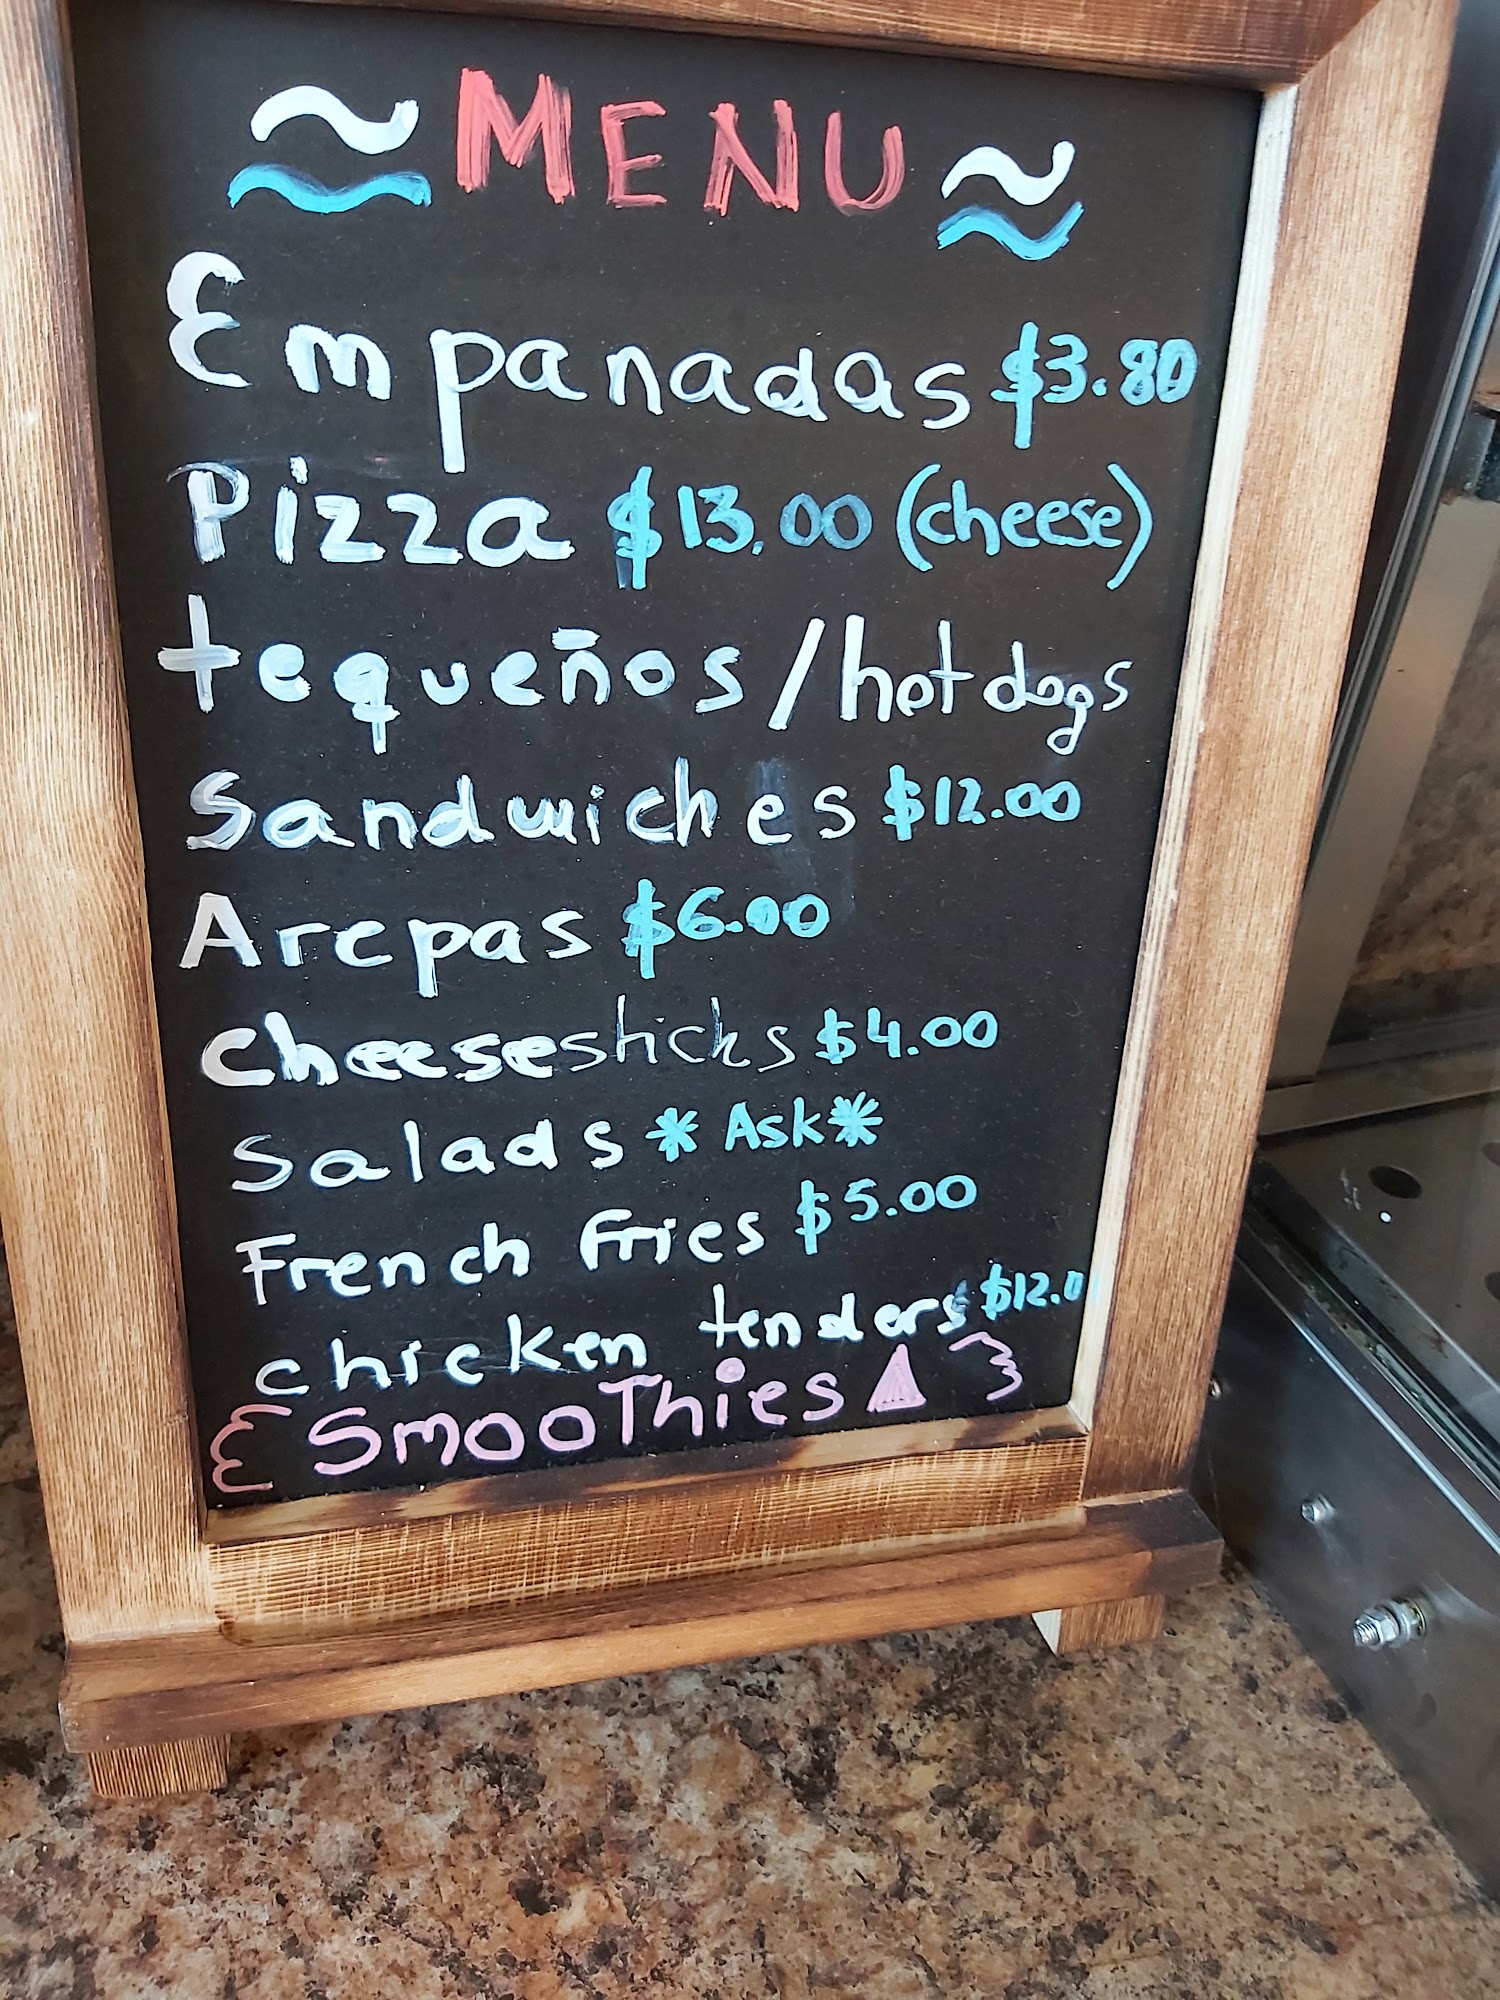 MENU
Empanadas $3.80
Pizza $13.00 (cheese)
tequeños/hot dogs
Sandwiches $12.00
Arepas $6.00
cheesesticks $4.00
Salads *Ask*
French fries $5.00
chicken tenders $12.0
Smoothies